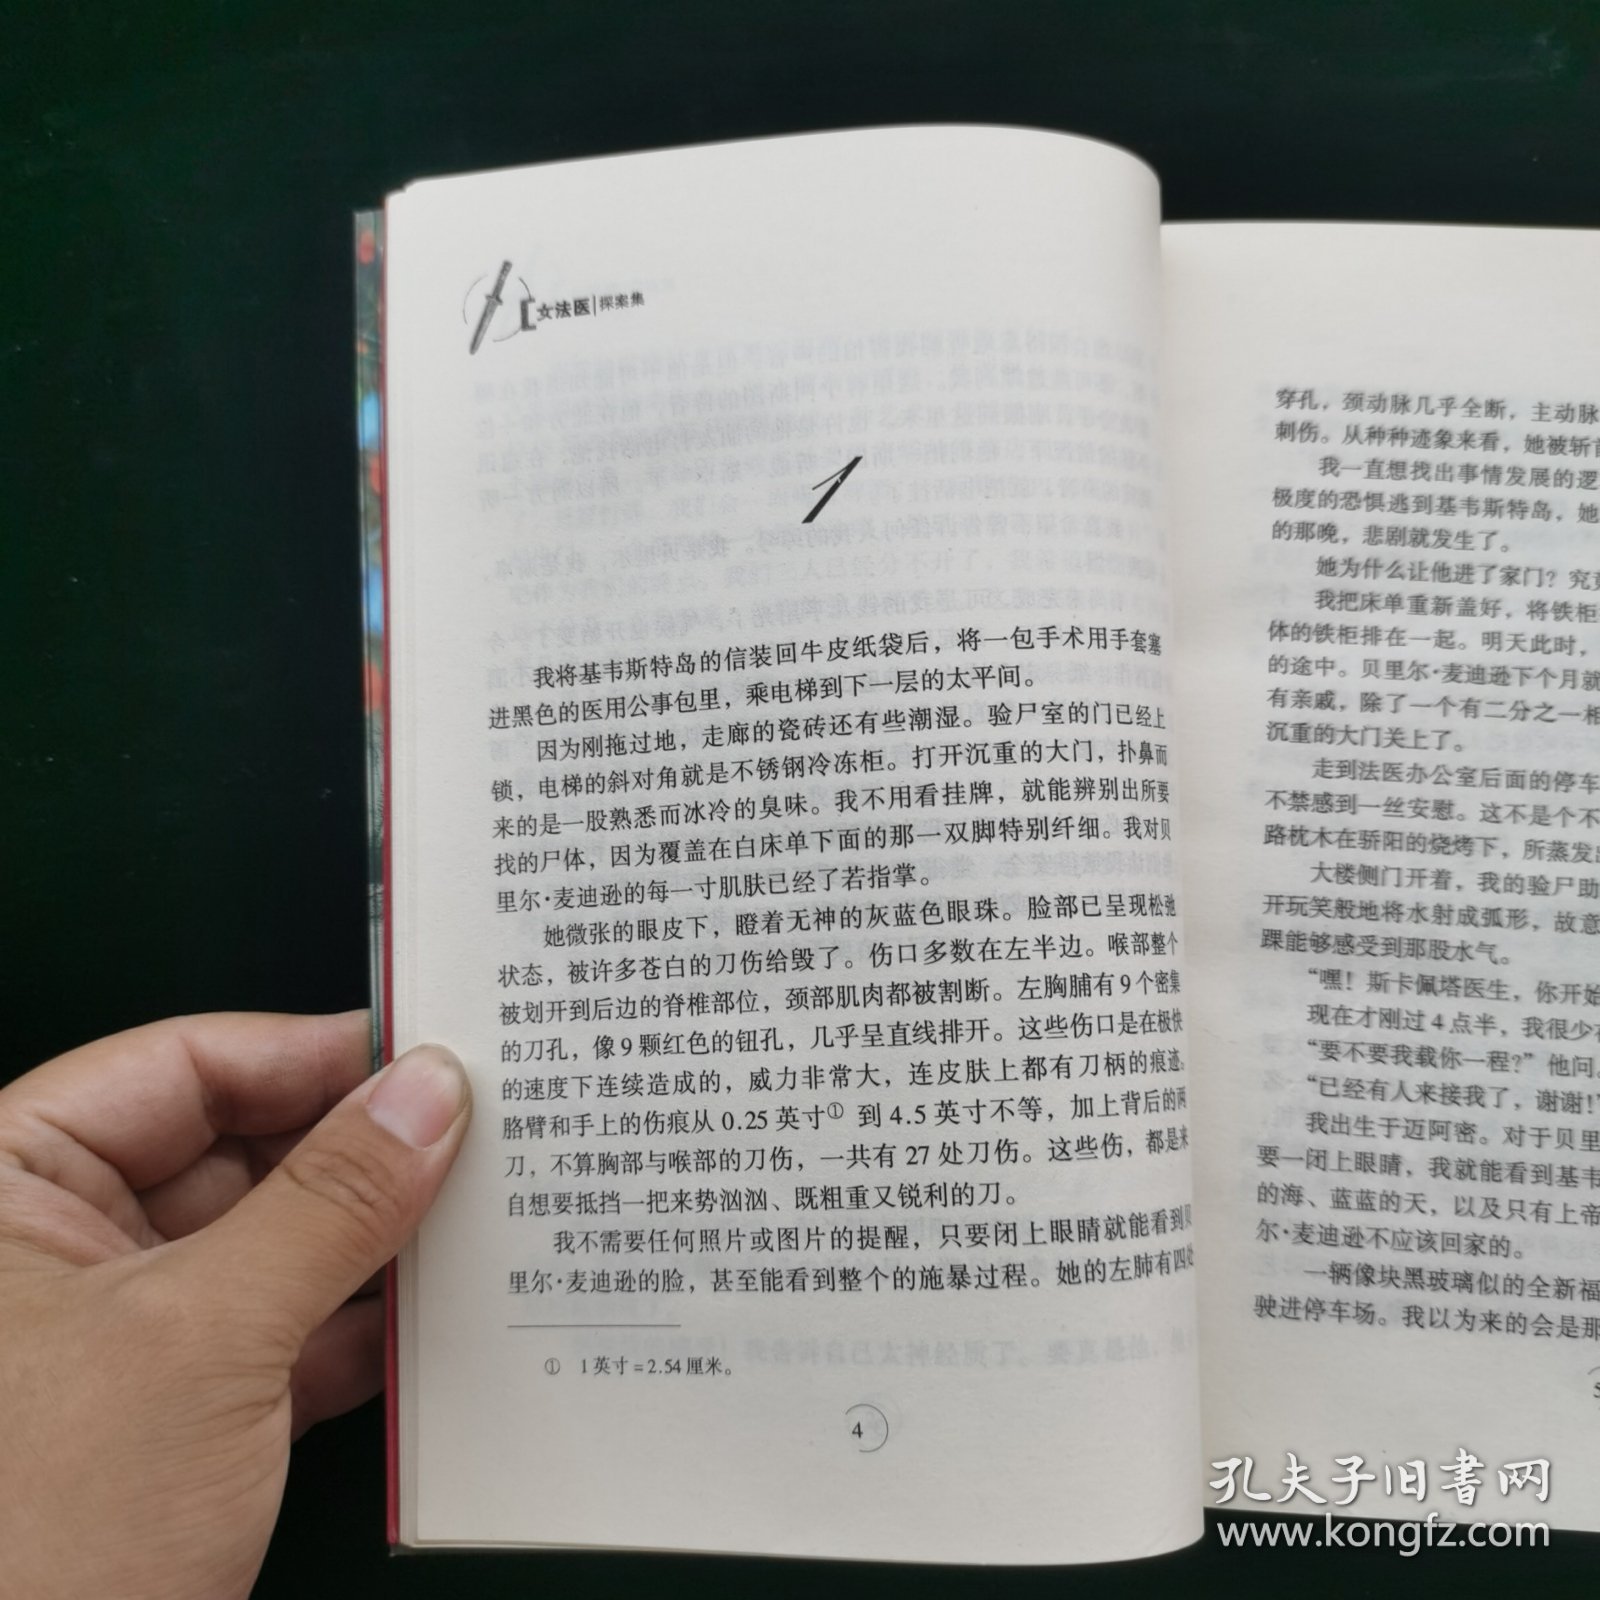 女法医|探案集
1
我将基韦斯特岛的信装回牛皮纸袋后，将一包手术用手套塞
进黑色的医用公事包里，乘电梯到下一层的太平间。
因为刚拖过地，走廊的瓷砖还有些潮湿。验尸室的门已经上
锁，电梯的斜对角就是不锈钢冷冻柜。打开沉重的大门，扑鼻而
来的是一股熟悉而冰冷的臭味。我不用看挂牌，就能辨别出所要
找的尸体，因为覆盖在白床单下面的那一双脚特别纤细。我对贝
里尔·麦迪逊的每一寸肌肤已经了若指掌。
她微张的眼皮下，瞪着无神的灰蓝色眼珠。脸部已呈现松弛
状态，被许多苍白的刀伤给毁了。伤口多数在左半边。喉部整个
被划开到后边的脊椎部位，颈部肌肉都被割断。左胸脯有9个密集
的刀孔，像9颗红色的钮孔，几乎呈直线排开。这些伤口是在极快
的速度下连续造成的，威力非常大，连皮肤上都有刀柄的痕迹。
胳臂和手上的伤痕从0.25英寸① 到4.5英寸不等，加上背后的两
刀，不算胸部与喉部的刀伤，一共有27处刀伤。这些伤，都是来
自想要抵挡一把来势汹汹、既粗重又锐利的刀。
我不需要任何照片或图片的提醒，只要闭上眼睛就能看到贝
里尔·麦迪逊的脸，甚至能看到整个的施暴过程。她的左肺有四处
① 1英寸=2.54厘米。
4
穿孔，颈动脉几乎全断，主动脉
刺伤。从种种迹象来看，她被斩首
我一直想找出事情发展的逻
极度的恐惧逃到基韦斯特岛，她
的那晚，悲剧就发生了。
她为什么让他进了家门？究竟
我把床单重新盖好，将铁柜
体的铁柜排在一起。明天此时，
的途中。贝里尔·麦迪逊下个月就
有亲戚，除了一个有二分之一相
沉重的大门关上了。
走到法医办公室后面的停车
不禁感到一丝安慰。这不是个不
路枕木在骄阳的烧烤下，所蒸发出
大楼侧门开着，我的验尸助
开玩笑般地将水射成弧形，故意
踝能够感受到那股水气。
“嘿！斯卡佩塔医生，你开始
现在才刚过4点半，我很少在
“要不要我载你一程？”他问。
“已经有人来接我了，谢谢！”
我出生于迈阿密。对于贝里
要一闭上眼睛，我就能看到基韦
的海、蓝蓝的天，以及只有上帝
尔·麦迪逊不应该回家的。
一辆像块黑玻璃似的全新福
驶进停车场。我以为来的会是那
5
孔夫子旧书网
www.kongfz.com